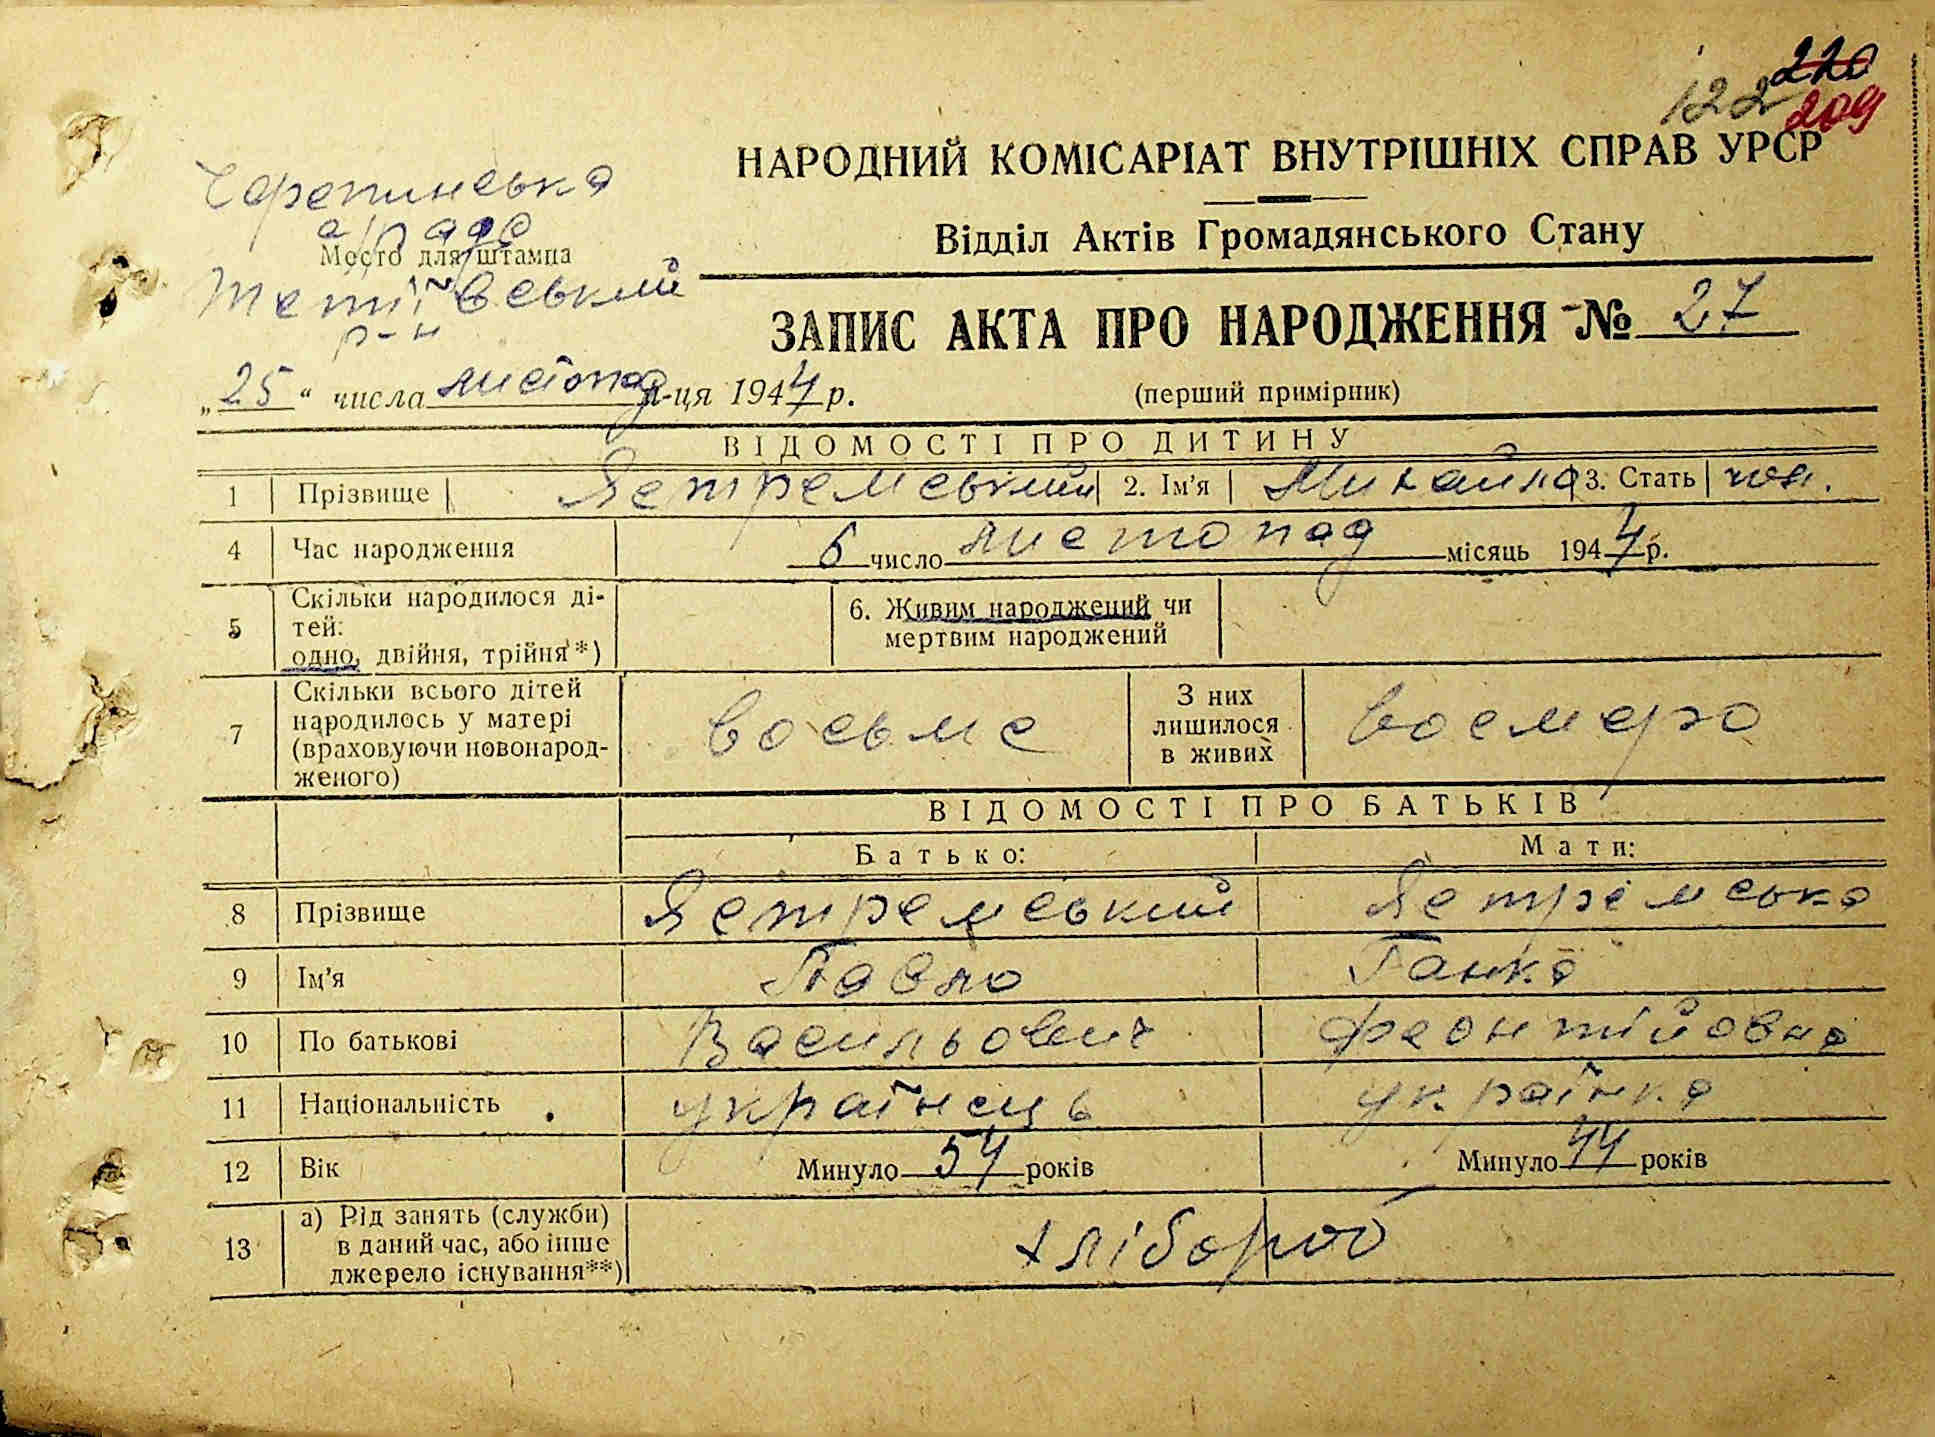 122 220
209
Черепинська
с/рада
Место для штампа
Тетіївський
р-н
НАРОДНИЙ КОМІСАРІАТ ВНУТРІШНІХ СПРАВ УРСР
Відділ Актів Громадянського Стану
ЗАПИС АКТА ПРО НАРОДЖЕННЯ № 27
„25“ числа листопад м-ця 1944 р. (перший примірник)
ВІДОМОСТІ ПРО ДИТИНУ
1 Прізвище Ястремський 2. Ім'я Михайло 3. Стать чол.
4 Час народження 6 число листопад місяць 1944 р.
5 Скільки народилося ді-
тей:
одно, двійня, трійня*)
6. Живим народжений чи
мертвим народжений
7 Скільки всього дітей
народилось у матері
(враховуючи новонарод-
женого)
восьме
З них
лишилося
в живих
восмеро
ВІДОМОСТІ ПРО БАТЬКІВ
Батько: Мати:
8 Прізвище Ястремський Ястремська
9 Ім'я Павло Ганна
10 По батькові Васильович Феонтійовна
11 Національність українець українка
12 Вік Минуло 54 років Минуло 44 років
13 а) Рід занять (служби)
в даний час, або інше
джерело існування**)
хлібороб